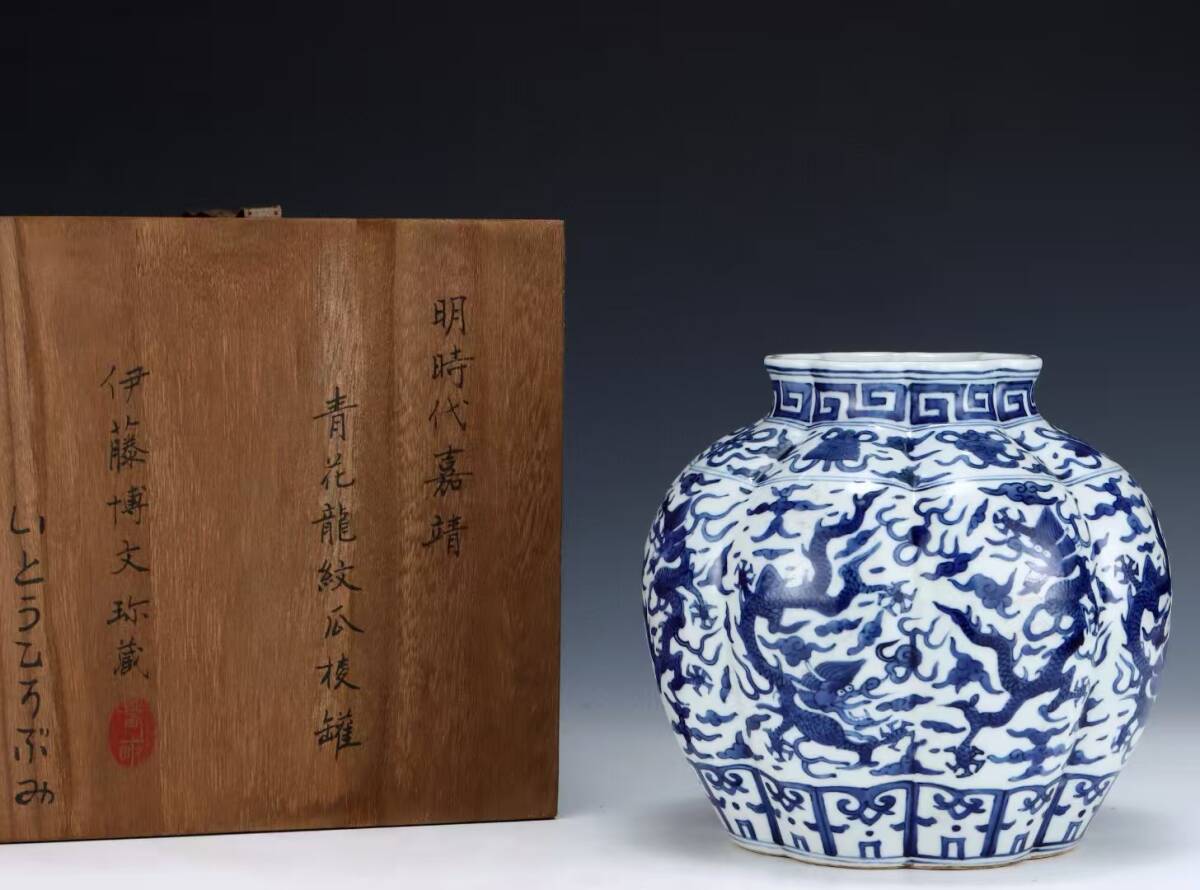 明時代嘉靖
青花龍紋瓜棱罐
伊藤博文珎蔵
いとうひろぶみ